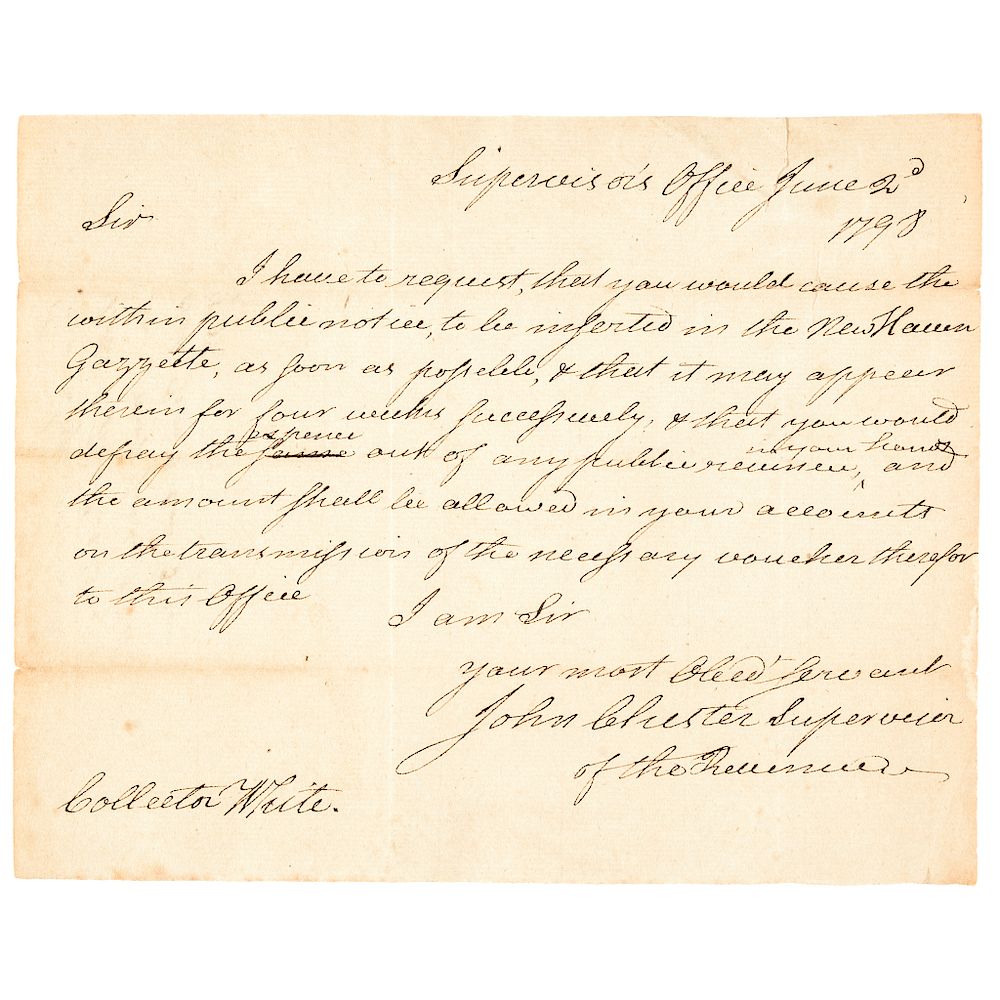 Supervisor's Office June 2d
1798
Sir
I have to request, that you would cause the
within public notice, to be inserted in the New Haven
Gazzette, as soon as possible, & that it may appear
therein for four weeks successively, & that you would
defray the same expence out of any public revenue in your hands, and
the amount shall be allowed in your accounts
on the transmission of the necessary voucher therefor
to this Office
I am Sir
your most Obed' Servant
John Chester Supervisor
of the Revenue
Collector White.